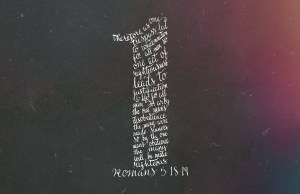 Therefore as one
trespass led
to condemnation
for all men so
one act of
righteousness
leads to
justification
& life for all
men. For as by
the one man's
disobedience
the many were
made sinners
so by the one
man's obedience
the many
will be made
righteous
Romans 5:18-19